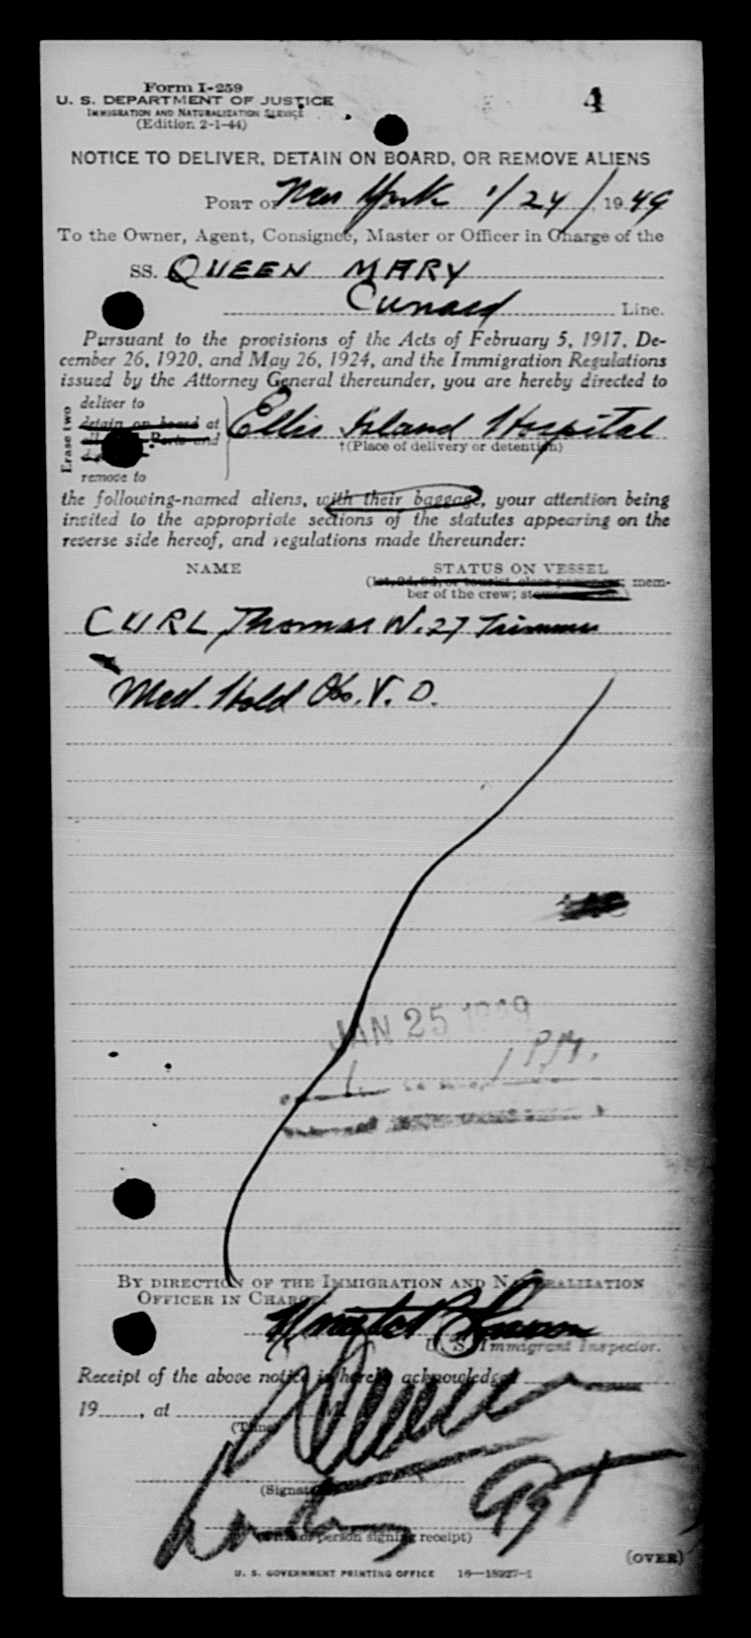 4
Form I-259
U. S. DEPARTMENT OF JUSTICE
IMMIGRATION AND NATURALIZATION SERVICE
(Edition 2-1-44)
NOTICE TO DELIVER, DETAIN ON BOARD, OR REMOVE ALIENS
PORT OF New York 1/24/ 1949
To the Owner, Agent, Consignee, Master or Officer in Charge of the
SS. QUEEN MARY
Cunard Line.
Pursuant to the provisions of the Acts of February 5, 1917, De-
cember 26, 1920, and May 26, 1924, and the Immigration Regulations
issued by the Attorney General thereunder, you are hereby directed to
Erase two
deliver to
detain on board at
Ports and
remove to
Ellis Island Hospital
†(Place of delivery or detention)
the following-named aliens, with their baggage, your attention being
invited to the appropriate sections of the statutes appearing on the
reverse side hereof, and regulations made thereunder:
NAME STATUS ON VESSEL
(1st, 2d, 3d, or tourist class passenger; mem-
ber of the crew;
CURL, Thomas W. 27 Trimmer
Med. Hold V. D.
JAN 25 1949
1 PM.
BY DIRECTION OF THE IMMIGRATION AND NATURALIZATION
OFFICER IN CHARGE
U. S. Immigrant Inspector.
Receipt of the above notice is hereby acknowledged
19 , at M.
(Time)
(Signature
(Title of person signing receipt)
(OVER)
U. S. GOVERNMENT PRINTING OFFICE 16—18927-1